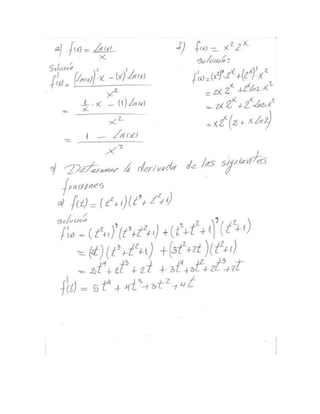 a) f(x) = Ln(x) / x
Solución
f'(x) = ((Ln(x))' · x - (x)' Ln(x)) / x²
= (1/x · x - (1) Ln(x)) / x²
= (1 - Ln(x)) / x²
f) f(x) = x² 2ˣ
Solución:
f'(x) = (x²)' 2ˣ + (2ˣ)' · x²
= 2x 2ˣ + 2ˣ Ln2 · x²
= 2x 2ˣ + 2ˣ Ln2 x²
= x 2ˣ (2 + x Ln2)
Determine la derivada de las siguientes
funciones
a) f(t) = (t²+1)(t³+t²+1)
Solución
f'(x) = (t²+1)'(t³+t²+1) + (t³+t²+1)'(t²+1)
= (2t)(t³+t²+1) + (3t²+2t)(t²+1)
= 2t⁴ + 2t³ + 2t + 3t⁴ + 3t² + 2t³ + 2t
f'(t) = 5t⁴ + 4t³ + 3t² + 4t